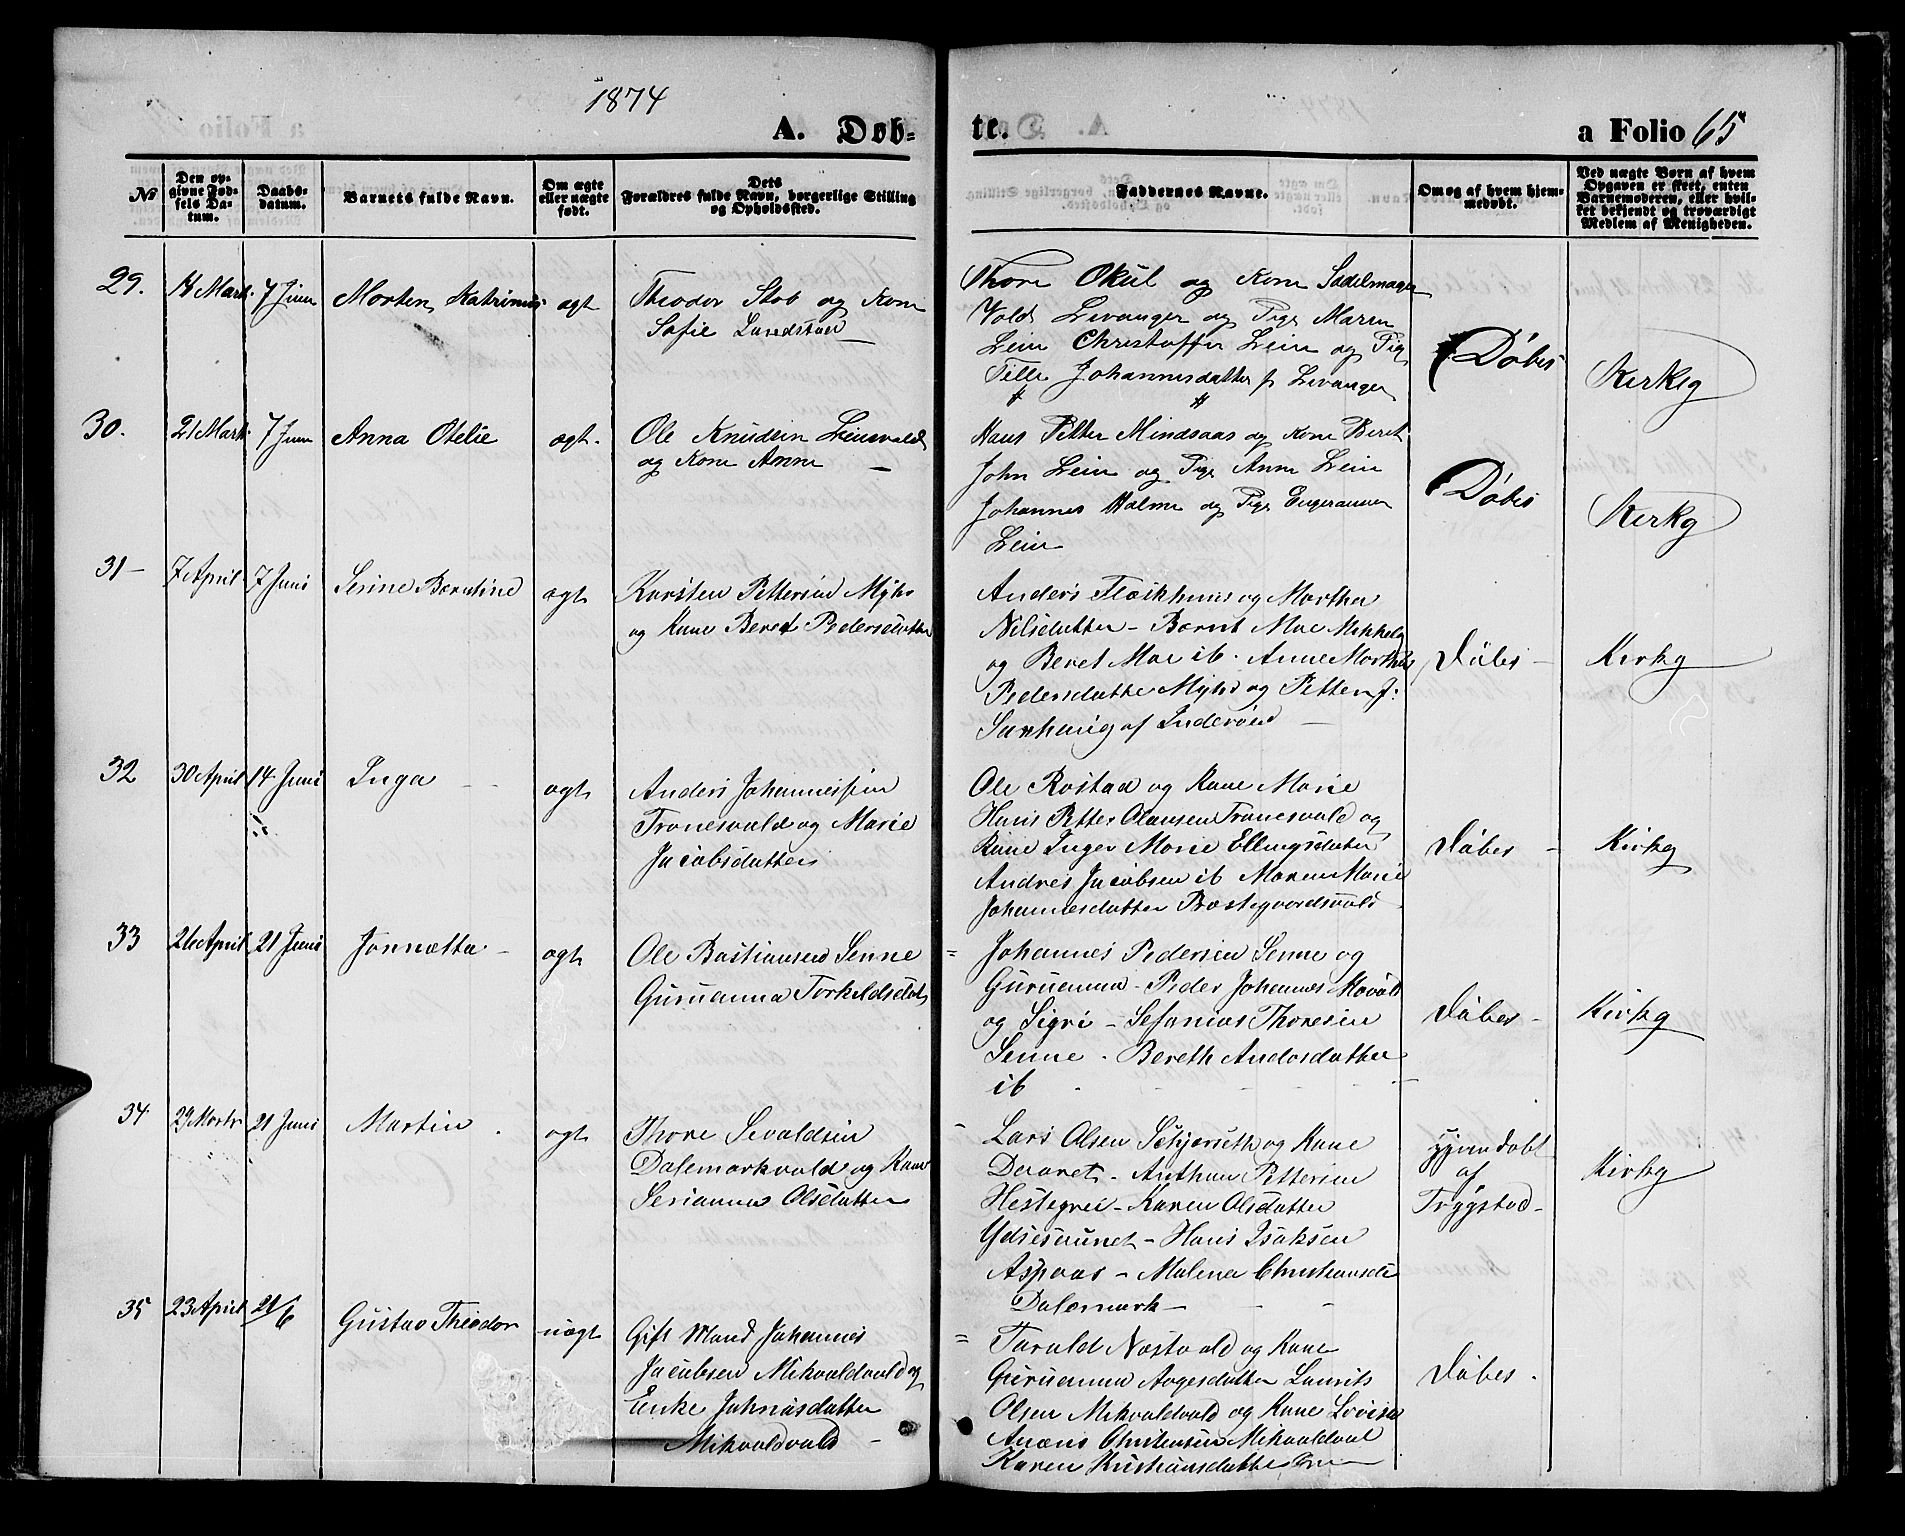 1874
A. Døb-
te.
a Folio 65
No
Den op-
givne Fød-
sels Da-
tum.
Daabs-
datum.
Barnets fulde Navn.
Om ægte
eller uægte
født.
Dets
Forældres fulde Navn, borgerlige Stilling
og Opholdssted.
Faddernes Navne.
Om og af hvem hjem-
medøbt.
Ved uægte Børn af hvem
Opgaven er skeet, enten
Barnemoderen, eller hvil-
ket bekjendt og troværdigt
Medlem af Menigheden.
29.
14 Mart.
7 Juni
Morten Katrinus
ægt
Theodor Stob og Kone
Sofie Lundstad
Thore Okul og Kone Sadelmager
Vold Levanger og Pige Maren
Lein Christoffer Lein og Pig
Tille Johannesdatter p Levanger
Døbes
Kirkg
30.
21 Mart.
7 Juni
Anna Otelie
ægt.
Ole Knudsen Leinsvald
og Kone Anne
Hans Petter Mindsaas og Kone Beret
John Lein og Pige Anne Lein
Johannes Halme og Pige
Lein
Døbes
Kirkg
31
7 April
7 Juni
Serine Berntine
ægt
Karsten Pettersen Myhr
og Kone Beret Pedersdatter
Anders Floikhuus og Martha
Nilsdatter - Bernt Moe Mikkelg
og Beret Moe ib. Anne Martha
Pedersdatter Myhr og Petter J:
Sanhaug af Inderøen
Døbes
Kirkg
32
30 April
14 Juni
Inga
ægt
Anders Johannessen
Tronesvald og Marie
Jacobsdatter
Ole Rostad og Kone Marie
Hans Petter Olausen Tronesvald og
Kone Inger Marie Ellingsdatter
Andres Jacobsen ib Maren Marie
Johannesdatter
Døbes
Kirkg
33
26 April
21 Juni
Jonnætta
ægt
Ole Bastiansen Senne
Guruanna Torkildsdat
Johannes Pedersen Senne og
Guruanna - Peder Johannes Movald
og Sigri - Sefanias Thoresen
Senne - Bereth Andersdatter
ib
Døbes
Kirkg
34
29 Marts
21 Juni
Martin
ægt
Thore Sevaldsen
Dalemarkvald og Kone
Serianna Olsdatter
Lars Olsen Schjerseth og Kone
Daaret - Anthon Pettersen
Hestegrei - Karen Olsdatter
Ydseaunet - Hans Isaksen
Aspaas - Malena Christiansda
Dalemark
Hjemdøbt
af
Trygstad
Kirkg
35
23 April
21/6
Gustav Theodor
uægt
Gift Mand Johannes
Jacobsen Mikvoldvald og
Enke Johnasdatter
Mikvoldvald
Tarald Næstvold og Kone
Guruanna Aagesdatter Laurits
Olsen Mikvoldvald og Kone Lovise
Anæus Christensen Mikvoldval
Karen Kristiansdatter
Døbes